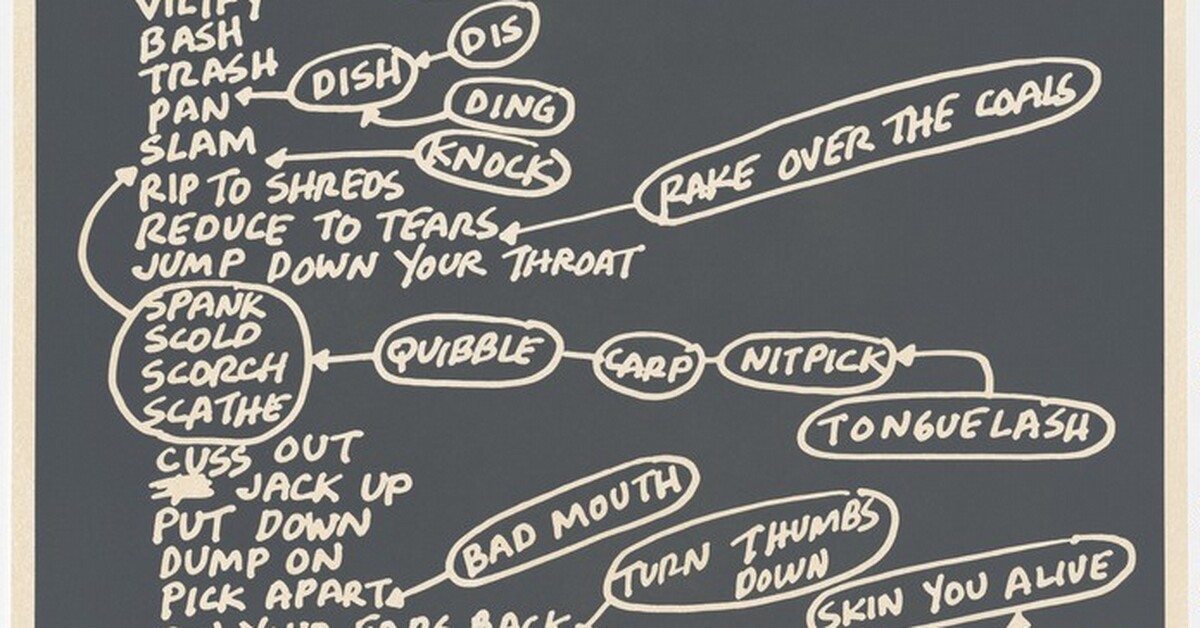 VILIFY
BASH
DIS
TRASH
DISH
PAN
DING
SLAM
KNOCK
RAKE OVER THE COALS
RIP TO SHREDS
REDUCE TO TEARS
JUMP DOWN YOUR THROAT
SPANK
SCOLD
SCORCH
SCATHE
QUIBBLE
CARP
NITPICK
TONGUE LASH
CUSS OUT
JACK UP
PUT DOWN
DUMP ON
PICK APART
BAD MOUTH
TURN THUMBS
DOWN
SKIN YOU ALIVE
YOUR EARS BACK